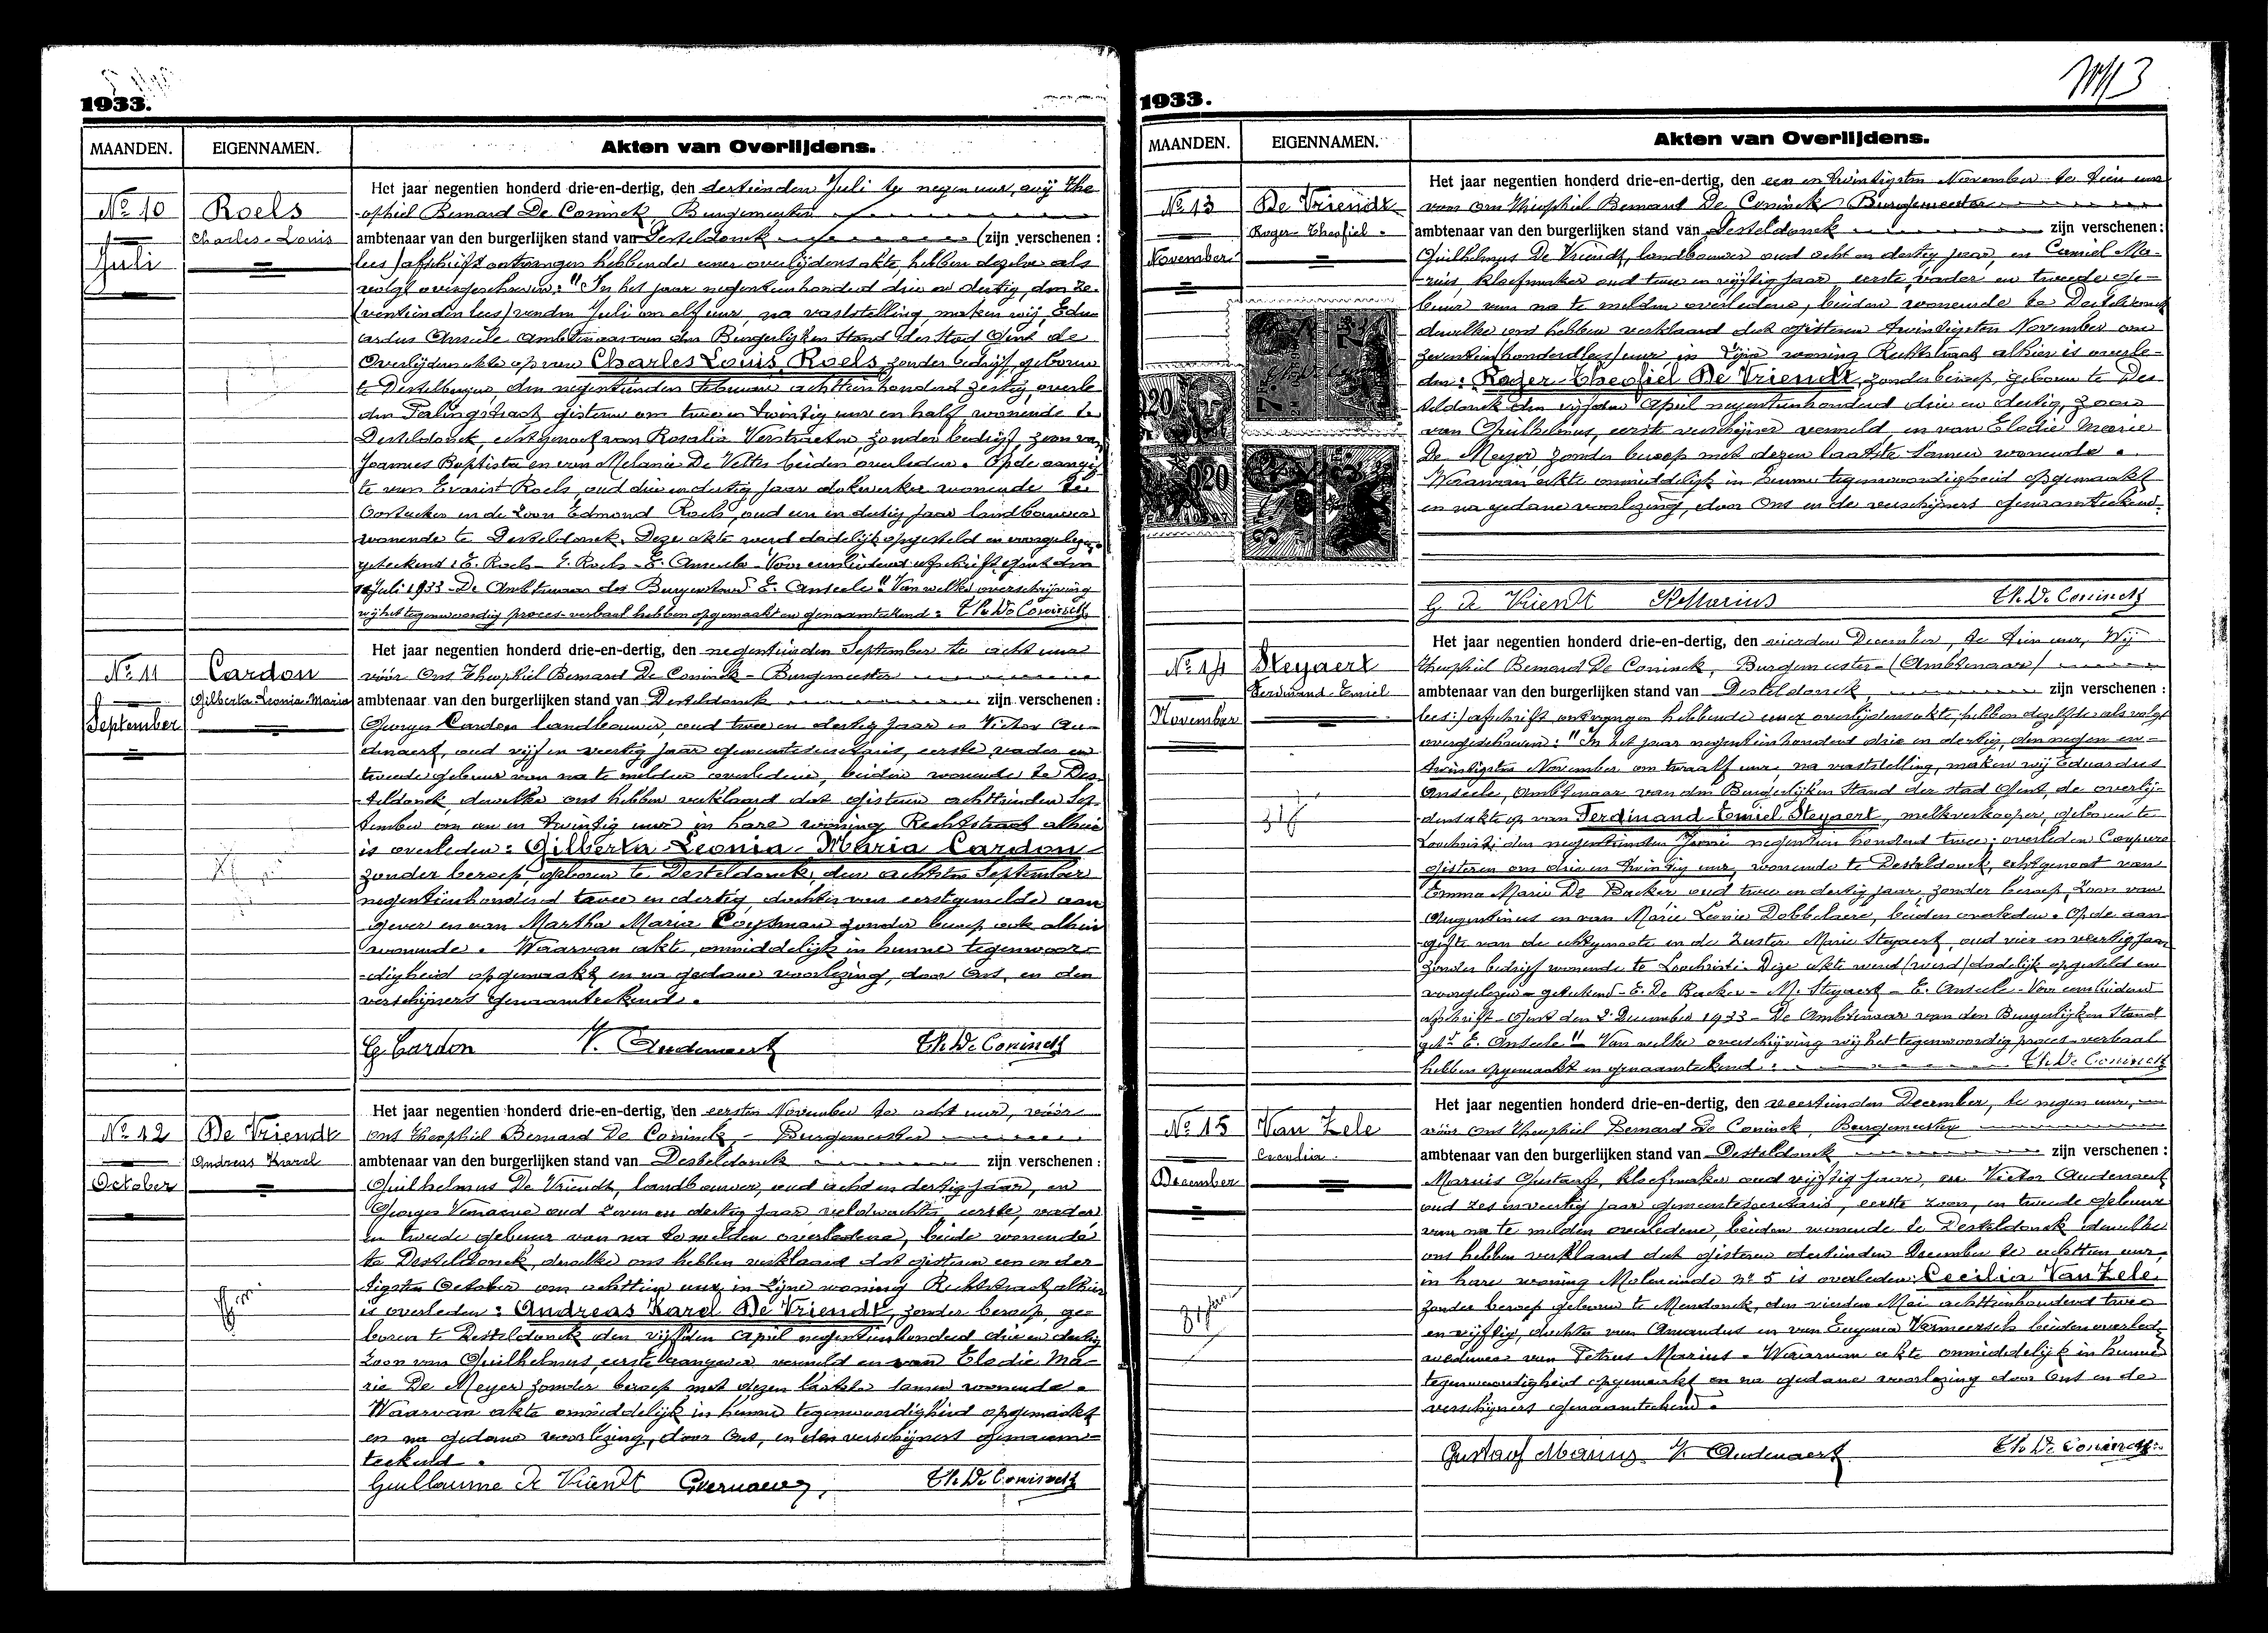 1933.
MAANDEN. EIGENNAMEN. Akten van Overlijdens.
Nº 10
Juli
Roels
Charles-Louis
Het jaar negentien honderd drie-en-dertig, den dertienden Juli te negen uur, wij The
-ophiel Bernard De Coninck, Burgemeester
ambtenaar van den burgerlijken stand van Desteldonck (zijn verschenen :
lees) afschrift ontvangen hebbende eener overlijdensakte, hebben dezelve als
volgt overgeschreven: "In het jaar negentienhonderd drie en dertig, den ze-
(ventienden lees) venden Juli om elf uur, na vaststelling maken wij, Edu-
ardus Anseele Ambtenaar van den Burgerlijken Stand der Stad Gent de
Overlijdensakte op van Charles Louis Roels, zonder bedrijf, geboren
te Destelbergen, den negentienden Februari achttienhonderd zestig, overle
den Palingstraat gisteren om twee en twintig uur en half wonende te
Desteldonck, echtgenoot van Rosalie Verstraeten zonder bedrijf zoon van
Joannes Baptista en van Melanie De Velter beiden overleden. Op de aangif
te van Evarist Roels, oud drie en dertig jaar dokwerker wonende te
Oostacker en de zoon Edmond Roels, oud een en dertig jaar landbouwer
wonende te Desteldonck. Deze akte werd dadelijk opgesteld en voorgelezen
geteekend: E. Roels - E. Roels - E. Anseele - Voor eensluidend afschrift Gent den
Juli 1933 - De Ambtenaar des Burgerstand E. Anseele" Van welke overschrijving
wij het tegenwoordig proces-verbaal hebben opgemaakt en genaamteekend: Th. De Coninck
Nº 11
September
Cardon
Gilberta-Leonia-Maria
Het jaar negentien honderd drie-en-dertig, den negentienden September te acht uur
vóór Ons Theophiel Bernard De Coninck - Burgemeester
ambtenaar van den burgerlijken stand van Desteldonck zijn verschenen :
Georges Cardon landbouwer, oud twee en dertig jaar en Victor Au-
denaert, oud vijf en veertig jaar gemeentesecretaris, eerste vader en
tweede gebuur van na te melden overledene, beiden wonende te Des-
teldonck dewelke ons hebben verklaard dat gisteren achttienden Sep-
tember om een en twintig uur in hare woning Rechtstraat alhier
is overleden: Gilberta-Leonia-Maria Cardon
zonder beroep, geboren te Desteldonck, den achtsten September
negentienhonderd twee en dertig dochter van eerstgemelde aan
gever en van Martha Maria zonder beroep ook alhier
wonende. Waarvan akte, onmiddelijk in hunne tegenwoor-
-digheid opgemaakt en na gedane voorlezing, door Ons, en den
verschijners genaamteekend.
G. Cardon V. Audenaert Th. De Coninck
Nº 12
October
De Vriendt
Andreas Karel
Het jaar negentien honderd drie-en-dertig, den eersten November te acht uur, vóór
ons Theophiel Bernard De Coninck, - Burgemeester
ambtenaar van den burgerlijken stand van Desteldonck zijn verschenen :
Guilhelmus De Vriendt, landbouwer, oud acht en dertig jaar, en
Georges Vernaeve oud zeven en dertig jaar veldwachter, eerste, vader
en tweede gebuur van na te melden overledene, beide wonende
te Desteldonck, dewelke ons hebben verklaard dat gisteren een en der
tigsten October om achttien uur, in zijne woning Rechtstraat alhier
is overleden: Andreas Karel De Vriendt, zonder beroep, ge-
boren te Desteldonck den vijfden April negentienhonderd drie en dertig
zoon van Guilhelmus, eerste aangever vermeld en van Elodie Ma-
rie De Meyer zonder beroep met dezen laatste samen wonende.
Waarvan akte onmiddelijk in hunne tegenwoordigheid opgemaakt
en na gedane voorlezing, door Ons, en den verschijners genaam-
teekend.
Guillaume De Vriendt G Vernaeve, Th. De Coninck
1933.
MAANDEN. EIGENNAMEN. Akten van Overlijdens.
Nº 13
November
De Vriendt
Roger-Theofiel
Het jaar negentien honderd drie-en-dertig, den een en twintigsten November te tien uur
voor Ons Theophiel Bernard De Coninck Burgemeester
ambtenaar van den burgerlijken stand van Desteldonck zijn verschenen :
Guilhelmus De Vriendt, landbouwer oud acht en dertig jaar, en Camiel Ma-
-rius, kloefmaker oud twee en vijftig jaar eerste, vader en tweede ge-
buur van na te melden overledene, beiden wonende te Desteldonck
dewelke ons hebben verklaard dat gisteren twintigsten November om
zeventien (honderd lees) uur in zijne woning Rechtstraat alhier is overle-
den: Roger-Theofiel De Vriendt, zonder beroep, geboren te Des
teldonck den vijfden April negentienhonderd drie en dertig, zoon
van Guilhelmus, eerste verschijner vermeld en van Elodie Marie
De Meyer, zonder beroep met dezen laatste samen wonende.
Waarvan akte onmiddelijk in hunne tegenwoordigheid opgemaakt
en na gedane voorlezing, door Ons en de verschijners genaamteekend.
G De Vriendt Marius Th. De Coninck
Nº 14
November
Steyaert
Ferdinand-Emiel
Het jaar negentien honderd drie-en-dertig, den vierden December, te tien uur, Wij
Theophiel Bernard De Coninck, Burgemeester (Ambtenaar)
ambtenaar van den burgerlijken stand van Desteldonck, zijn verschenen :
lees:) afschrift ontvangen hebbende eener overlijdensakte, hebben dezelfde als volgt
overgeschreven: "In het jaar negentienhonderd drie en dertig, den negen en-
twintigsten November om twaalf uur, na vaststelling, maken wij Eduardus
Anseele, Ambtenaar van den Burgerlijken Stand der stad Gent, de overlij-
densakte op van Ferdinand Emiel Steyaert, melkverkooper, geboren te
Loochristi den negentienden negentien honderd twee; overleden Coupure
gisteren om drie en twintig uur, wonende te Desteldonck, echtgenoot van
Emma Marie De Backer oud twee en dertig jaar, zonder beroep, zoon van
Augustinus en van Marie Leonie Dobbelaere, beiden overleden. Op de aan
gifte van de echtgenoote en de zuster Marie Steyaert, oud vier en veertig jaar
zonder bedrijf wonende te Loochristi. Deze akte werd (werd) dadelijk opgesteld en
voorgelezen - geteekend - E. De Backer - M. Steyaert - E. Anseele - Voor eensluidend
afschrift - Gent den 2 December 1933 - De Ambtenaar van den Burgerlijken Stand
get. E. Anseele" Van welke overschrijving wij het tegenwoordig proces-verbaal
hebben opgemaakt en genaamteekend: Th. De Coninck
Nº 15
December
Van Zele
Cecilia
Het jaar negentien honderd drie-en-dertig, den veertienden December, te negen uur,
vóór Ons Theophiel Bernard De Coninck, Burgemeester
ambtenaar van den burgerlijken stand van Desteldonck zijn verschenen :
Marius Gustaaf, kloefmaker oud vijftig jaar, en Victor Audenaert
oud zes en veertig jaar gemeentesecretaris, eerste zoon, en tweede gebuur
van na te melden overledene, beiden wonende te Desteldonck dewelke
ons hebben verklaard dat gisteren dertienden December te achttien uur,
in hare woning Moleneinde nº 5 is overleden: Cecilia Van Zele,
zonder beroep geboren te Mendonck, den vierden Mei achttienhonderd twee
en vijftig, dochter van Amandus en van Eugenia Vermeersch beiden overled.
weduwe van Petrus Marius. Waarvan akte onmiddelijk in hunne
tegenwoordigheid opgemaakt en na gedane voorlezing door Ons en de
verschijners genaamteekend.
Gustaaf Marius V. Audenaert Th. De Coninck